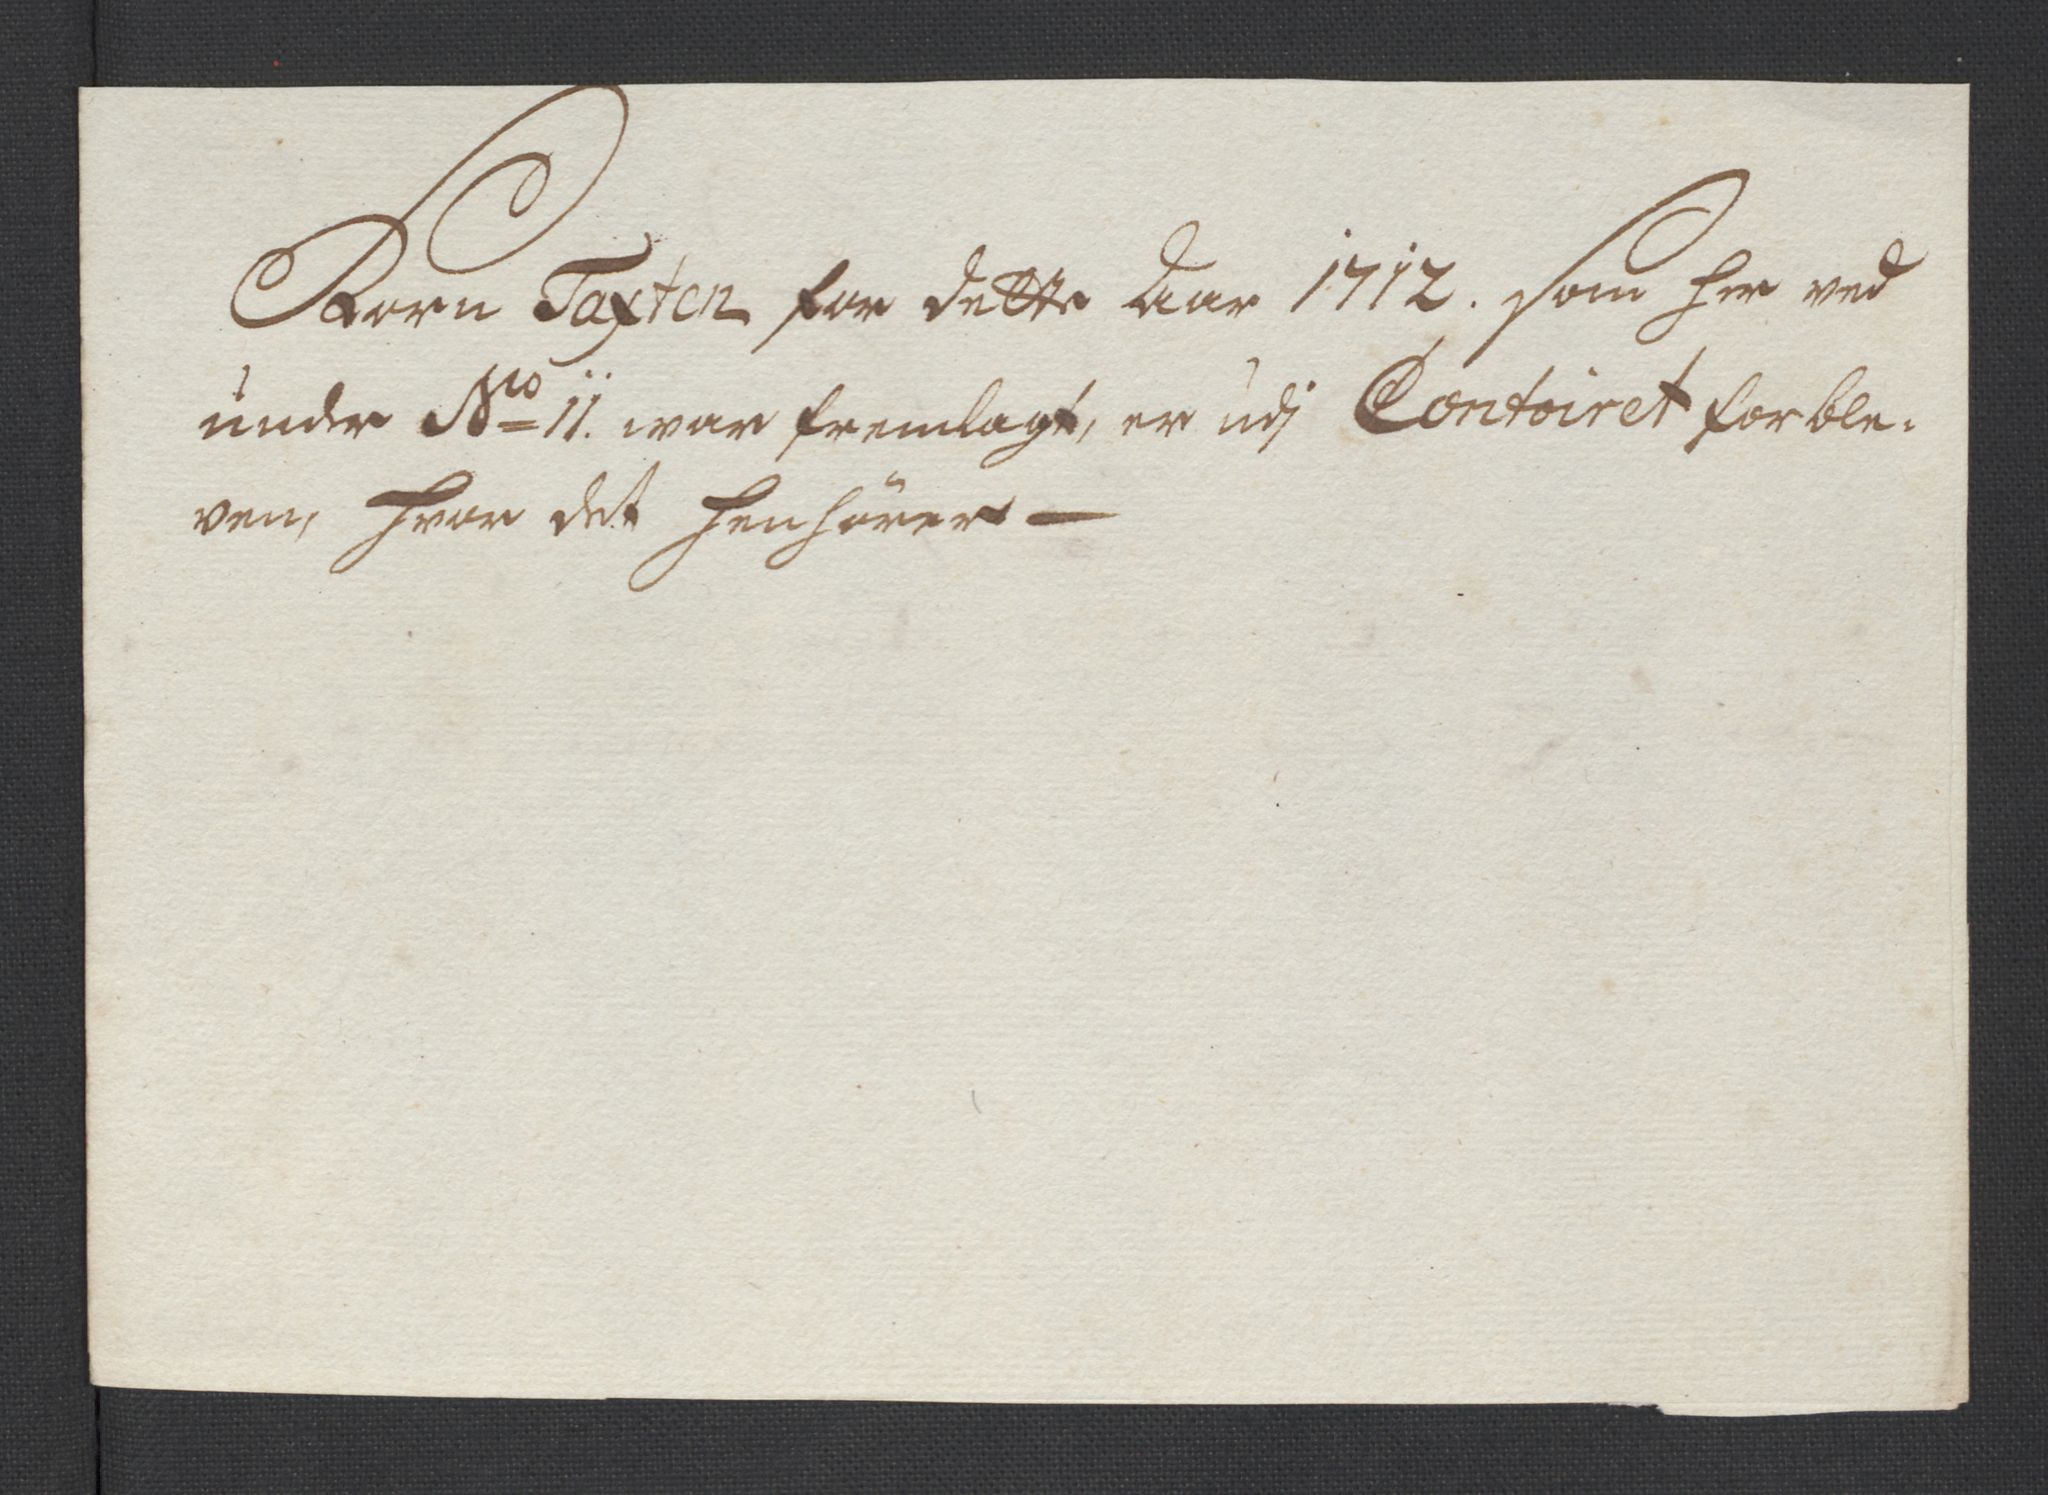 Korn Taxten for dette Aar 1712. som her ved
under No 11. war fremlagt, er udj Contoiret forble-
ven, hvor det henhörer —